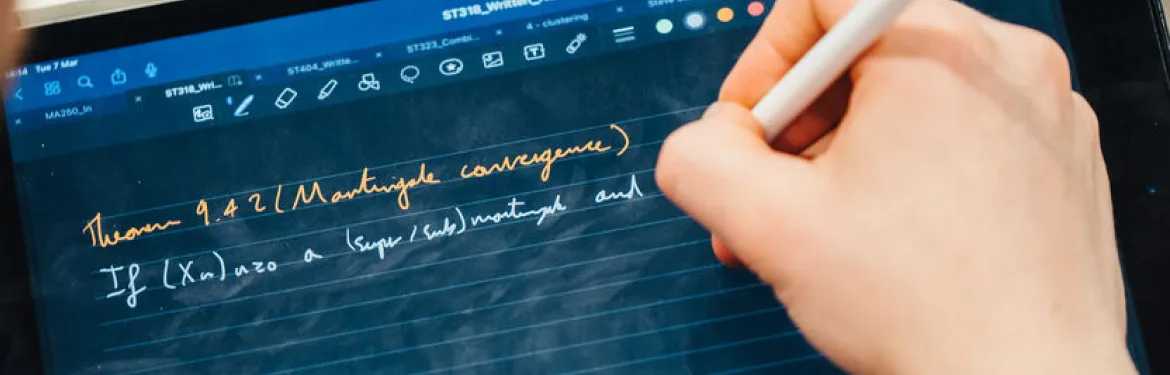 ST318_Written_
14:14 Tue 7 Mar
MA250_In
ST318_Wri...
ST404_Writte...
ST323_Combi...
4 - clustering
Steve
Theorem 9.42 (Martingale convergence)
If (Xn)n≥0 a (super/sub)martingale and